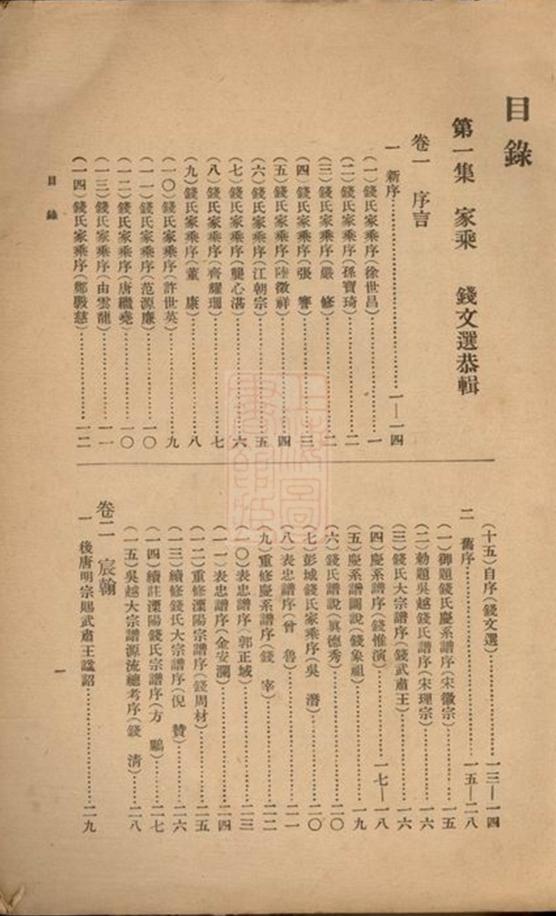 目錄
第一集　家乘　錢文選恭輯
卷一　序言
一　新序……一—一四
(一)錢氏家乘序(徐世昌)……一
(二)錢氏家乘序(孫寶琦)……二
(三)錢氏家乘序(嚴　修)……二
(四)錢氏家乘序(張　謇)……三
(五)錢氏家乘序(陸徵祥)……四
(六)錢氏家乘序(江朝宗)……五
(七)錢氏家乘序(龔心湛)……六
(八)錢氏家乘序(齊耀珊)……七
(九)錢氏家乘序(董　康)……八
(一〇)錢氏家乘序(許世英)……九
(一一)錢氏家乘序(范源廉)……一〇
(一二)錢氏家乘序(唐繼堯)……一〇
(一三)錢氏家乘序(由雲龍)……一一
(一四)錢氏家乘序(鄭毅慈)……一二
(十五)自序(錢文選)……一三—一四
二　舊序……一五—二八
(一)御題錢氏慶系譜序(宋徽宗)……一五
(二)勅題吳越錢氏譜序(宋理宗)……一六
(三)錢氏大宗譜序(錢武肅王)……一六
(四)慶系譜序(錢惟演)……一七—一八
(五)慶系譜圖說(錢象祖)……一九
(六)錢氏譜說(真德秀)……二〇
(七)彭城錢氏家乘序(吳　潛)……二〇
(八)表忠譜序(曾　魯)……二一
(九)重修慶系譜序(錢　宰)……二二
(一〇)表忠譜序(郭正域)……二三
(一一)表忠譜序(金安瀾)……二四
(一二)重修溧陽宗譜序(錢周材)……二五
(一三)續修錢氏大宗譜序(倪　贊)……二六
(一四)續註溧陽錢氏宗譜序(方　鵬)……二七
(一五)吳越大宗譜源流總考序(錢　清)……二八
卷二　宸翰
一　後唐明宗賜武肅王諡詔……二九
目錄
一